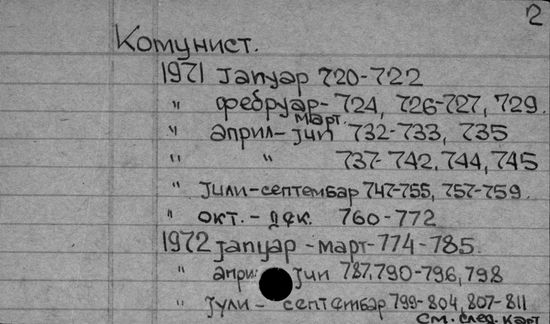 2
Комунист.
1971 јапуар 720-722
" фебруар- 724, 726-727, 729.
март.
" април-јип 732-733, 735
" " 737-742, 744, 745
" јили-септембар 747-755, 757-759.
" окт. - дек. 760-772
1972 јапуар -март- 774-785.
" јип 787, 790-796, 798
" јули- септембар 799-804, 807-811
см. след. карт